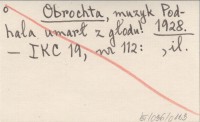 Obrochta, muzyk Pod-
hala umarł z głodu. 1928.
— IKC 19, nr 112: , il.